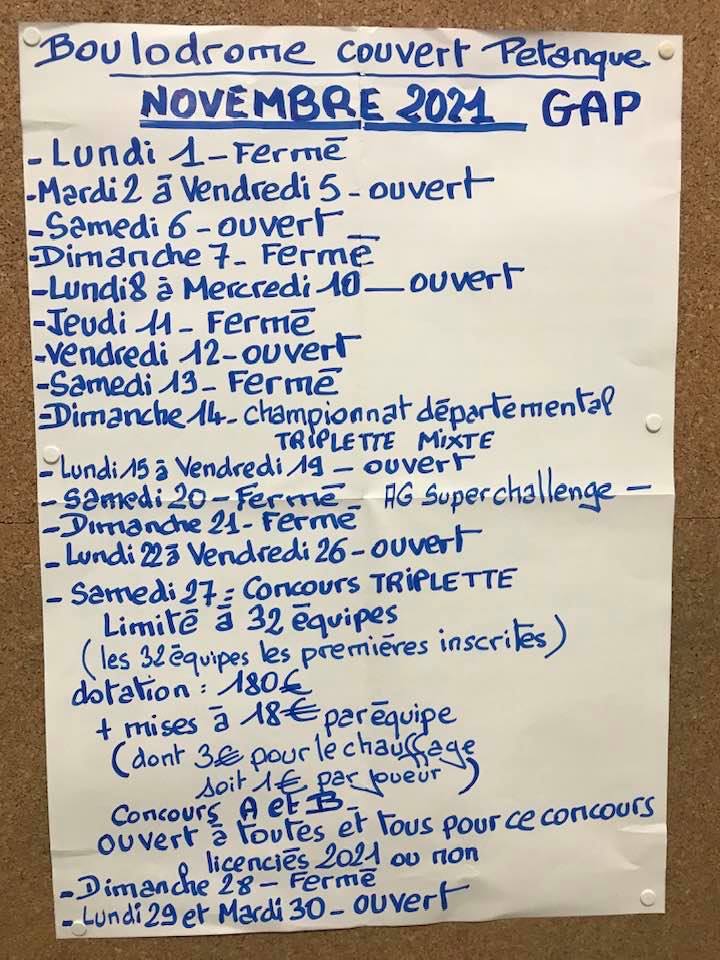 Boulodrome couvert Petanque
NOVEMBRE 2021 GAP
- Lundi 1 - Fermé
- Mardi 2 à Vendredi 5 - ouvert
- Samedi 6 - ouvert
- Dimanche 7 - Fermé
- Lundi 8 à Mercredi 10 — ouvert
- Jeudi 11 - Fermé
- Vendredi 12 - ouvert
- Samedi 13 - Fermé
- Dimanche 14 - championnat départemental
TRIPLETTE MiXTE
- Lundi 15 à Vendredi 19 - ouvert
- Samedi 20 - Fermé - AG Superchallenge -
- Dimanche 21 - Fermé
- Lundi 22 à Vendredi 26 - ouvert
- Samedi 27 : Concours TRIPLETTE
Limité à 32 équipes
(les 32 équipes les premières inscrites)
dotation : 180€
+ mises à 18€ par équipe
(dont 3€ pour le chauffage
soit 1€ par joueur)
Concours A et B
ouvert à toutes et tous pour ce concours
licenciés 2021 ou non
- Dimanche 28 - Fermé
- Lundi 29 et Mardi 30 - ouvert